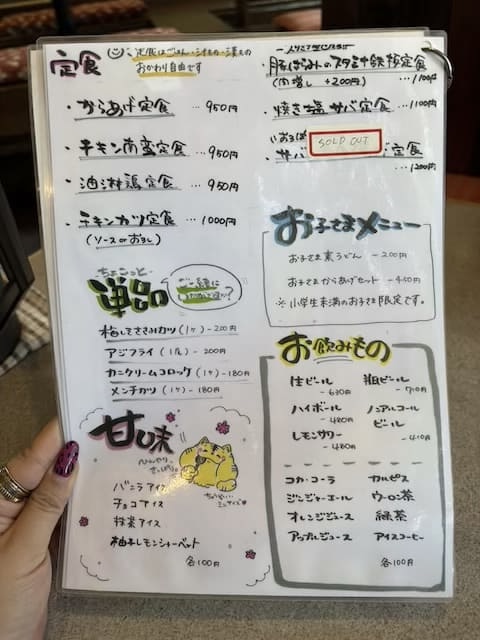 定食
定食はごはん・シオもの・漬もの
おかわり自由です
・からあげ定食 …950円
・チキン南蛮定食 …950円
・油淋鶏定食 …950円
・チキンカツ定食 …1000円
(ソース or おろし)
・豚ばらみのスタミナ鉄板定食
(肉増し +200円) …1100円
・焼き塩サバ定食 …1100円
SOLD OUT
・サバ 定食
…1200円
ちょこっと
単品
ご一緒に
梅しそささみカツ(1ヶ)-200円
アジフライ(1尾)-200円
カニクリームコロッケ(1ヶ)-180円
メンチカツ(1ヶ)-180円
甘味
ひんやり
さっぱり
ちょうどいい
ミニサイズ
バニラアイス
チョコアイス
抹茶アイス
柚子レモンシャーベット
各100円
お子さまメニュー
お子さま素うどん -200円
お子さまからあげセット -450円
※小学生未満のお子さま限定です。
お飲みもの
生ビール -630円
瓶ビール -710円
ハイボール -480円
ノンアルコールビール -410円
レモンサワー -480円
コカ・コーラ
カルピス
ジンジャーエール
ウーロン茶
オレンジジュース
緑茶
アップルジュース
アイスコーヒー
各100円